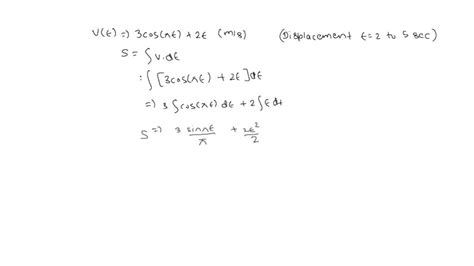 V(t) => 3cos(πt) + 2t (m/s) (Displacement t=2 to 5 sec)
S = ∫ v.dt
: ∫ [3cos(πt) + 2t] dt
=> 3 ∫cos(πt) dt + 2∫t dt
S => 3 sinπt/π + 2t²/2